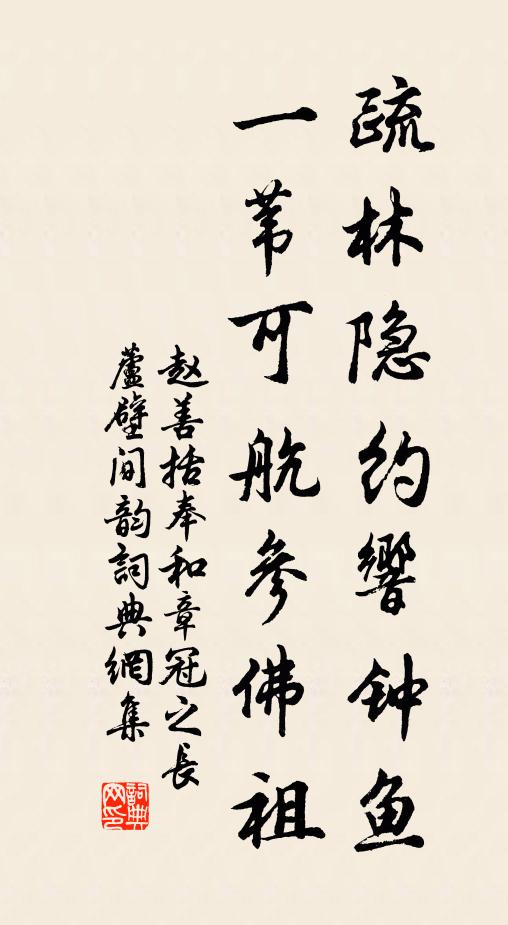 疏林隐约響钟鱼
一苇可航參佛祖
赵善括奉和章冠之長
蘆壁间韵詞典網集
詞典
网印